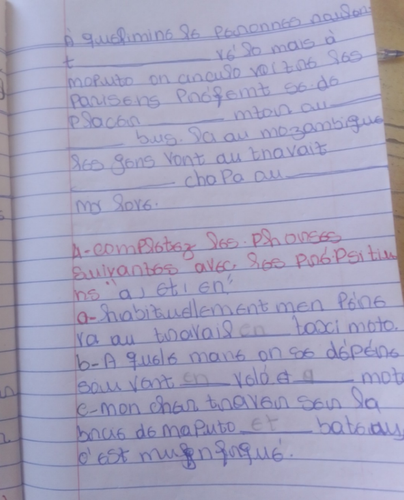 A quelimins les personnes aoulon
t ______ vélo mais à
maputo on anculo voitns les
pausens Préfemt se de
Placen ______ mton au
______ bus. la au mozambique
les gens vont au tnavait
______ chopa au ______
my love.
A-completez les phonses
suivantes avec les prépsitiu
ns "a) et en"
a-habituellement men pène
va au tnavail en taxi moto.
b-A quele mane on se dépène
sou vent en velo et a mot
c-mon chan tnaven sen la
baie de maputo et bateau
c'est magnfiqué.